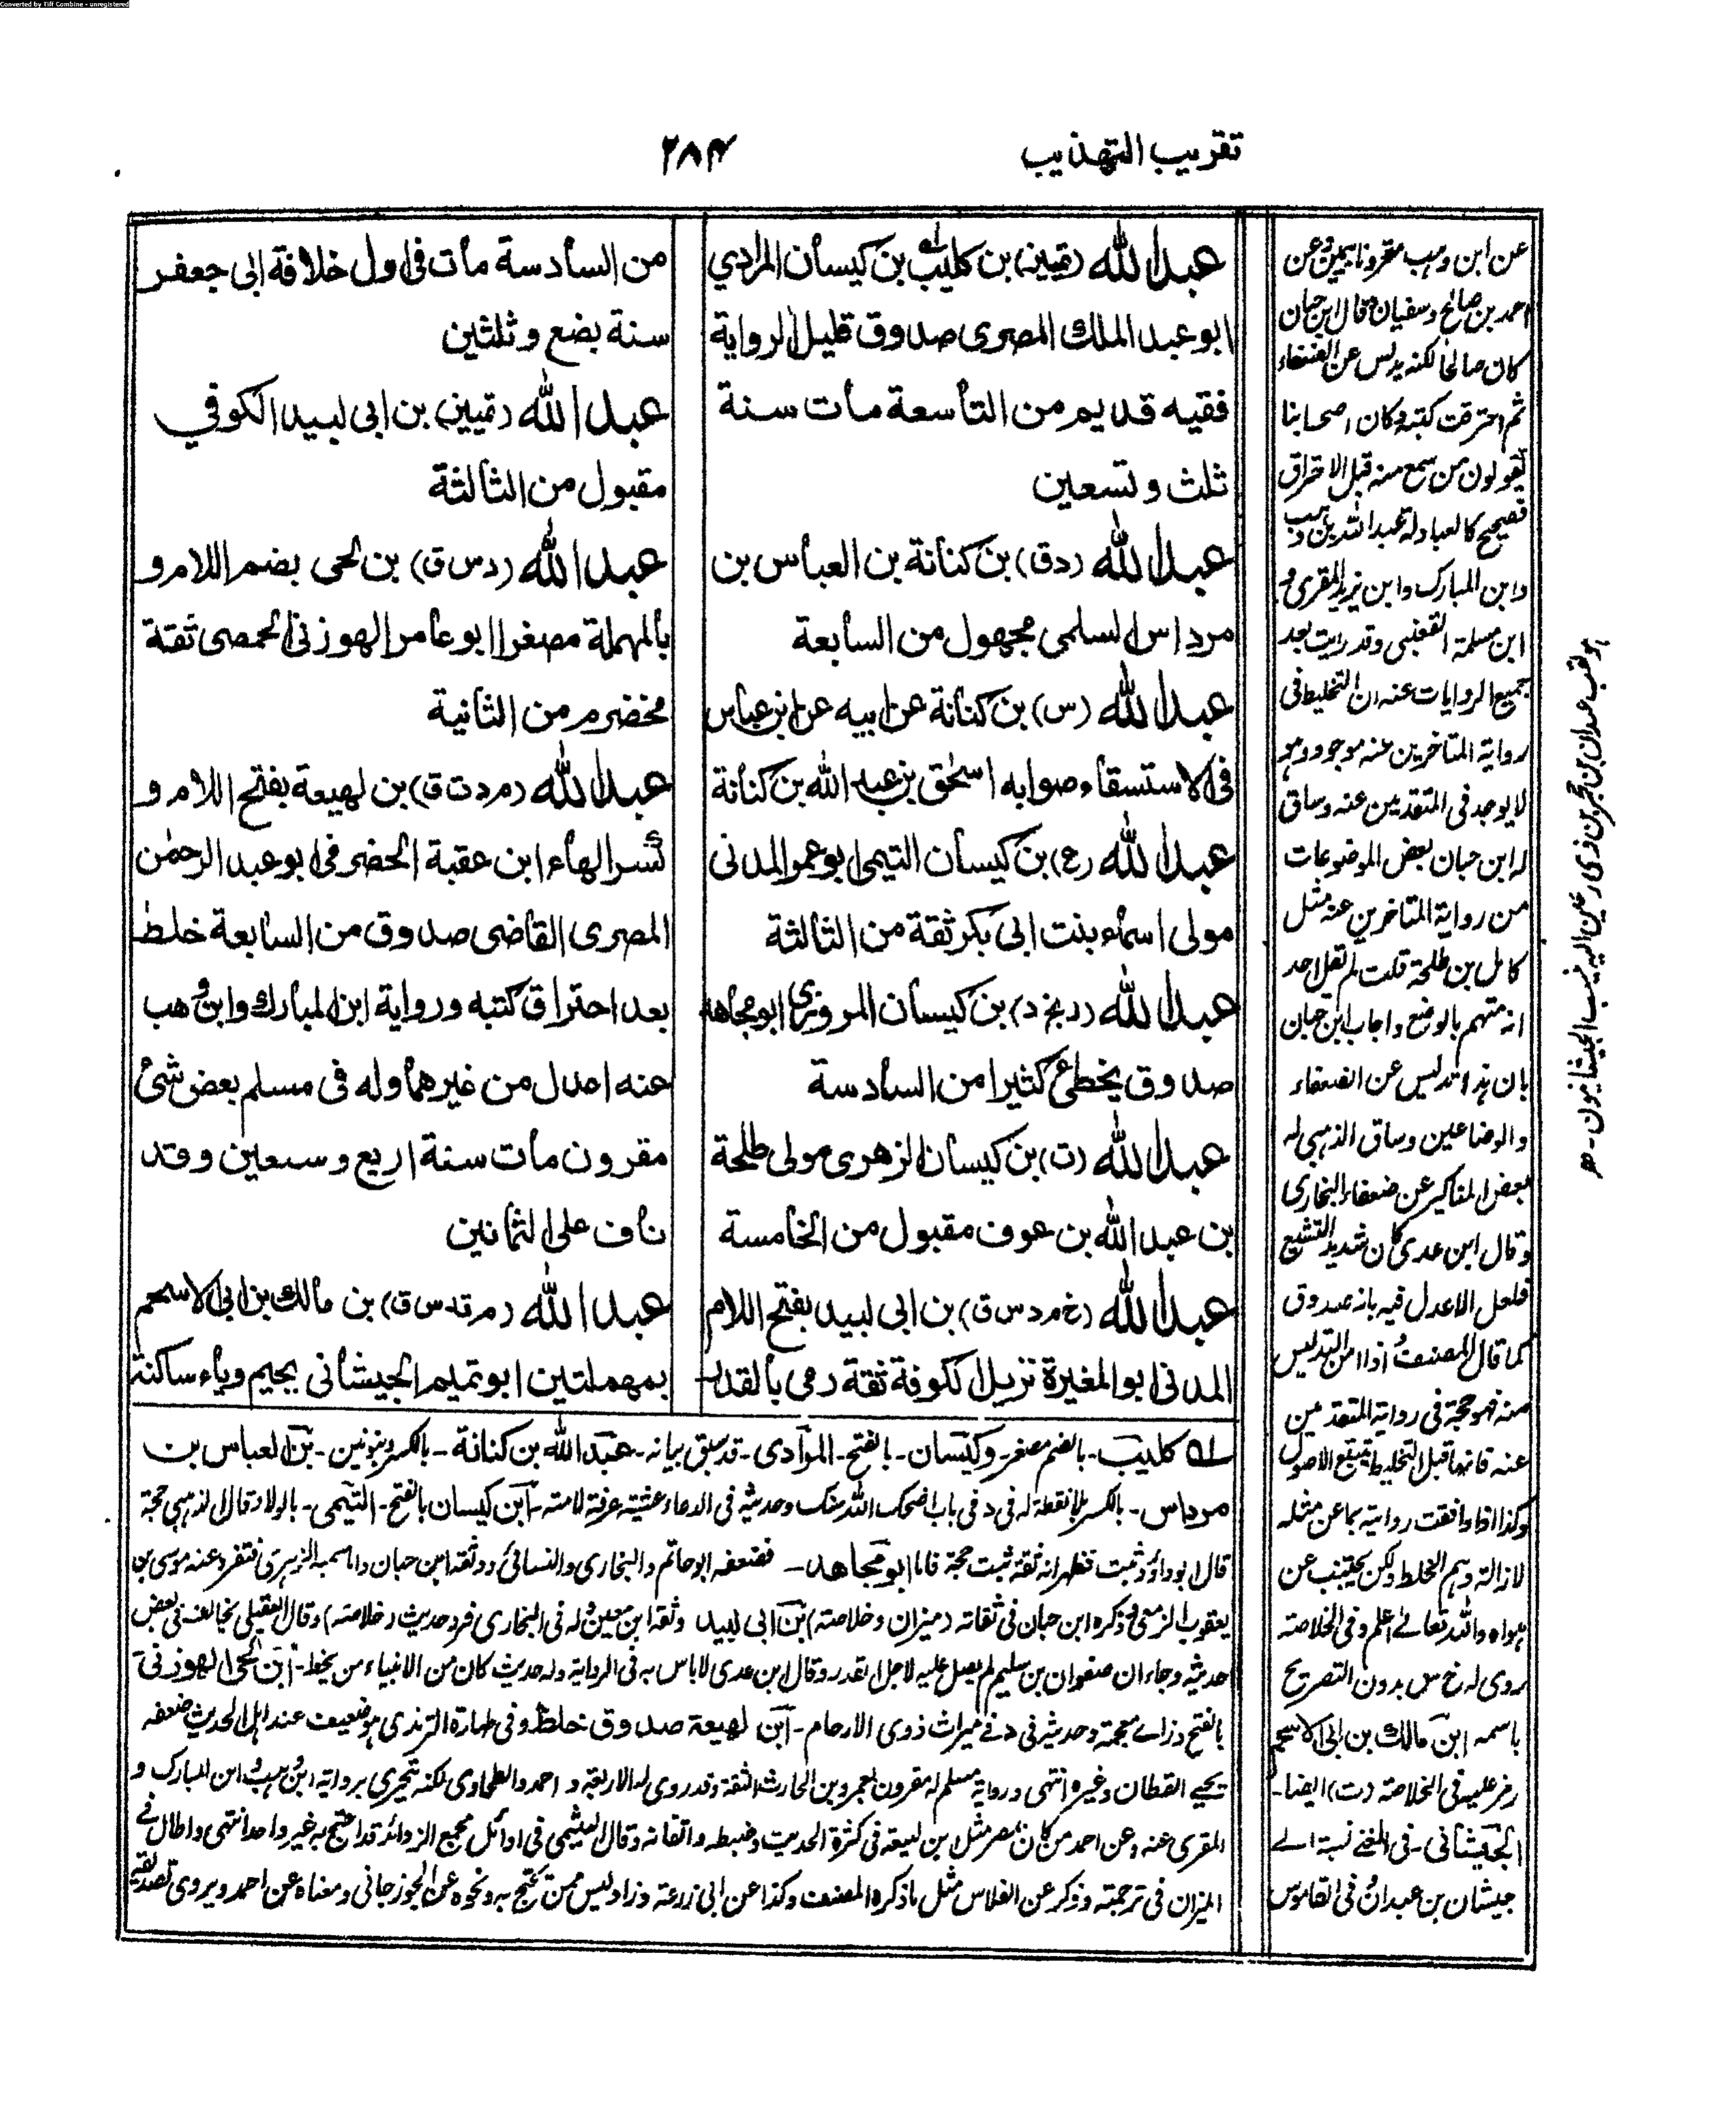 Converted by Tiff Combine - unregistered
تقريب التهذيب
٢٨٤
عبد الله (تمييز) بن كليب بن كيسان المرادي
ابو عبد الملك المصرى صدوق قليل الرواية
فقيه قديم من التاسعة مات سنة
ثلث وتسعين
عبد الله (دق) بن كنانة بن العباس بن
مرداس السلمى مجهول من السابعة
عبد الله (س) بن كنانة عن ابيه عن ابن عباس
فى الاستسقاء صوابه اسحٰق بن عبد الله بن كنانة
عبد الله (ع) بن كيسان التيمى ابو عمر المدنى
مولى اسماء بنت ابى بكر ثقة من الثالثة
عبد الله (بخ د) بن كيسان المروزى ابو مجاهد
صدوق يخطئ كثيرا من السادسة
عبد الله (ت) بن كيسان الزهرى مولى طلحة
بن عبد الله بن عوف مقبول من الخامسة
عبد الله (خ م د س ق) بن ابى لبيد بفتح اللام
المدنى ابو المغيرة نزيل الكوفة ثقة رمى بالقدر
من السادسة مات فى اول خلافة ابى جعفر
سنة بضع وثلثين
عبد الله (تمييز) بن ابى لبيد الكوفي
مقبول من الثالثة
عبد الله (د س ق) بن لحى بضم اللام و
بالمهملة مصغرا ابو عامر الهوزنى الحمصى ثقة
مخضرم من الثانية
عبد الله (م د ت ق) بن لهيعة بفتح اللام و
كسر الهاء ابن عقبة الحضرمى ابو عبد الرحمٰن
المصرى القاضى صدوق من السابعة خلط
بعد احتراق كتبه ورواية ابن المبارك وابن وهب
عنه اعدل من غيرهما وله فى مسلم بعض شئ
مقرون مات سنة اربع وسبعين وقد
ناف على الثمانين
عبد الله (م ت س ق) بن مالك بن ابى الاسحم
بمهملتين ابو تميم الجيشانى بجيم وياء ساكنة
كليب - بالضم مصغر - وكيسان - بالفتح - المرادى - قد سبق بيانه - عبد الله بن كنانة - بالكسر وبنونين - بن العباس بن
مرداس - بالكسر بلا نقطة له فى د فى باب اضحك الله سنك وحديثه فى الدعاء عشية عرفة لامته - ابن كيسان بالفتح - التيمى - بالولاء قال الذهبى حجة
قال ابو داؤد ثبت فظهر انه ثقة ثبت حجة فاما ابو مجاهد - فضعفه ابو حاتم والبخارى والنسائى ووثقه ابن حبان واما سميه الزهرى فتفرد عنه موسى بن
يعقوب الزمعى وذكره ابن حبان فى ثقاته (ميزان وخلاصة) ابن ابى لبيد وثقه ابن معين وله فى البخارى فرد حديث (خلاصه) وقال العقيلى يخالف فى بعض
حديثه وجاء ان صفوان بن سليم لم يصل عليه لاجل القدر وقال ابن عدى لا باس به فى الرواية وله حديث كان من الانبياء من يخط - ابن لحى الهوزنى
بالفتح وزاے معجمة وحديثه فى د فے ميراث ذوى الارحام - ابن لهيعة صدوق خلط وفى طهارة الترمذى هو ضعيف عند اهل الحديث ضعفه
يحيے القطان وغيره انتهى ورواية مسلم له مقرون بعمرو بن الحارث الثقة وقد روى له الاربعة و احمد والطحاوى لكنه يتحرى برواية ابن وهب وابن المبارك و
المقرى عنه وعن احمد من كان بمصر مثل ابن لهيعة فى كثرة الحديث وضبطه واتقانه وقال الهيثمى فى اوائل مجمع الزوائد قد احتج به غير واحد انتهى واطال فے
الميزان فى ترجمته وذكر عن الفلاس مثل ما ذكره المصنف وكذا عن ابى زرعة وزاد ليس ممن يحتج به ونحوه عن الجوزجانى ومعناه عن احمد ويروى تصديقه
عن ابن وهب مقرونا بيمين وعن
احمد بن صالح وسفيان وقال ابن حبان
كان صالحا لكنه يدلس عن الضعفاء
ثم احترقت كتبه وكان اصحابنا
يقولون من سمع منه قبل الاحتراق
فصحيح كالعبادلة عبد الله بن وهب
وابن المبارك وابن يزيد المقرى و
ابن مسلمة القعنبى وقد رايت بعد
جميع الروايات عنه ان التخليط فى
رواية المتاخرين عنه موجود وهو
لا يوجد فى المتقدمين عنه وساق
له ابن حبان بعض الموضوعات
من رواية المتاخرين عنه مثل
كامل بن طلحة قلت لم يقل احد
انه متهم بالوضع واجاب ابن حبان
بان هذا تدليس عن الضعفاء
والوضاعين وساق الذهبى له
بعض المناكير عن ضعفاء البخارى
وقال ابن عدى كان شديد التشيع
فلعل الاعدل فيه بانه صدوق
كما قال المصنف اذا امن التدليس
منه فهو حجة فى رواية المتقدمين
عنه فانها قبل التخليط يتتبع الاصول
وكذا اذا وافقت روايته بما عن مثله
لازالة وهم الخلط ولكن يجتنب عن
سواه والله تعالے اعلم وفى الخلاصة
روى له خ س بدون التصريح
باسمه ابن مالك بن ابى الاسحم
رمز عليه فى الخلاصة (ت) ايضا -
الجيشانى - فى المغنے نسبة الے
جيشان بن عبدان فى القاموس
هو لقب عبدان بن حجر بن ذى رعين اليه نسب الجيشانيون -